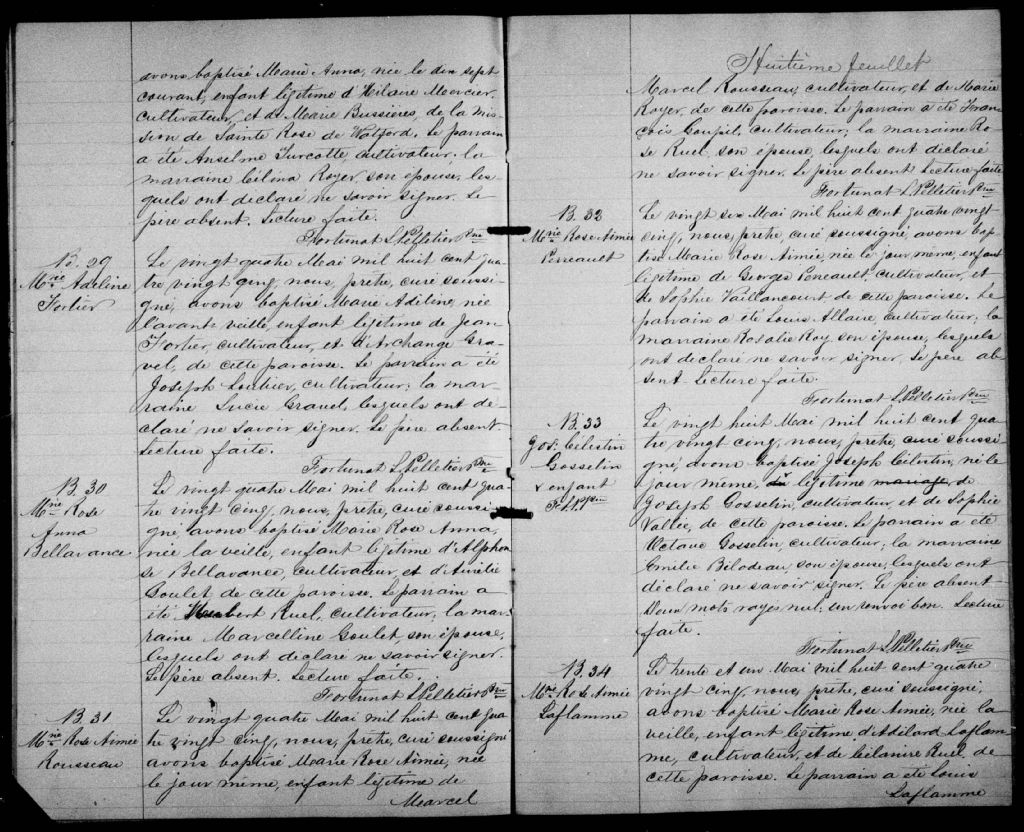 avons baptisé Marie Anna, née le dix sept
courant, enfant légitime d'Hilaire Mercier,
cultivateur, et de Marie Bussières, de la mis-
sion de Sainte Rose de Watford. Le parrain
a été Anselme Turcotte, cultivateur; la
marraine Célina Royer, son épouse, les-
quels ont déclaré ne savoir signer. Le
père absent. Lecture faite.
Fortunat L. Pelletier Ptre
B. 29
Mrie Adeline
Fortier
Le vingt quatre Mai mil huit cent qua-
tre vingt cinq, nous, prêtre, curé soussi-
gné, avons baptisé Marie Adéline, née
l'avant-veille, enfant légitime de Jean
Fortier, cultivateur, et d'Archange Gra-
vel, de cette paroisse. Le parrain a été
Joseph Loubier, cultivateur; la mar-
raine Lucie Gravel, lesquels ont dé-
claré ne savoir signer. Le père absent
Lecture faite.
Fortunat L. Pelletier Ptre
B. 30
Mrie Rose
Anna
Bellavance
Le vingt quatre Mai mil huit cent qua-
tre vingt cinq, nous, prêtre, curé soussi-
gné, avons baptisé Marie Rose Anna,
née la veille, enfant légitime d'Alphon
se Bellavance, cultivateur, et d'Aurélie
Goulet de cette paroisse. Le parrain a
été Hubert Ruel, cultivateur; la mar-
raine Marcelline Goulet, son épouse,
lesquels ont déclaré ne savoir signer.
Le père absent. Lecture faite.
Fortunat L. Pelletier Ptre
B. 31
Mrie Rose Aimée
Rousseau
Le vingt quatre Mai mil huit cent qua-
tre vingt cinq, nous, prêtre, curé soussigné
avons baptisé Marie Rose Aimée, née
le jour même, enfant légitime de
Marcel
Huitième feuillet
Marcel Rousseau, cultivateur, et de Marie
Royer, de cette paroisse. Le parrain a été Fran-
çois Goupil, cultivateur; la marraine Ro-
se Ruel, son épouse, lesquels ont déclaré
ne savoir signer. Le père absent Lecture faite
Fortunat L. Pelletier Ptre
B. 32
Mrie Rose Aimée
Perreault
Le vingt six Mai mil huit cent quatre vingt
cinq, nous, prêtre, curé soussigné, avons bap-
tisé Marie Rose Aimée, née le jour même, enfant
légitime de Georges Perreault, cultivateur, et
de Sophie Vaillancourt de cette paroisse. Le
parrain a été Louis Allaire, cultivateur; la
marraine Rosalie Roy son épouse, lesquels
ont déclaré ne savoir signer. Le père ab-
sent. Lecture faite.
Fortunat L. Pelletier Ptre
B. 33
Jos. Célestin
Gosselin
x enfant
F. L. P. Ptre
Le vingt huit Mai mil huit cent qua-
tre vingt cinq, nous, prêtre, curé soussi-
gné, avons baptisé Joseph Célestin, né le
jour même, x légitime mariage, de
Joseph Gosselin, cultivateur, et de Sophie
Vallée, de cette paroisse. Le parrain a été
Octave Gosselin, cultivateur; la marraine
Emélie Bilodeau, son épouse, lesquels ont
déclaré ne savoir signer. Le père absent
Deux mots rayés nul; un renvoi bon. Lecture
faite.
Fortunat L. Pelletier Ptre
B. 34
Mrie Rose Aimée
Laflamme
Le trente et un Mai mil huit cent quatre
vingt cinq, nous, prêtre, curé soussigné,
avons baptisé Marie Rose Aimée, née la
veille, enfant légitime d'Adélard Laflam-
me, cultivateur, et de Célanire Ruel de
cette paroisse. Le parrain a été Louis
Laflamme